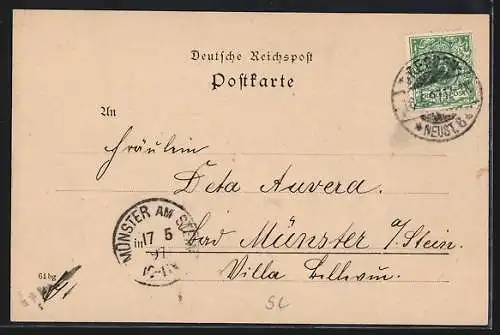 Deutsche Reichspost
Postkarte
An
Fräulein
Deta Auvera.
in Bad Münster a/Stein.
Villa Bellevue.
MÜNSTER AM STEIN
17 5
97
NEUST. 8
64 bg
SL